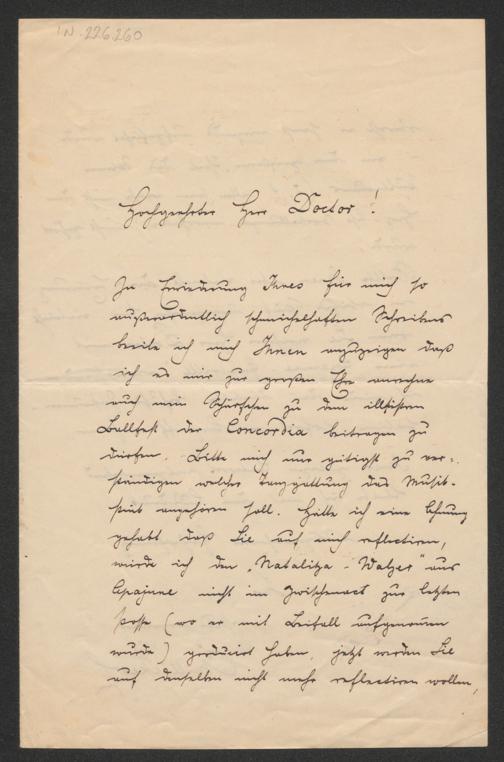 IN 226.260
Hochgeehrter Herr Doctor!
In Erwiederung Ihres für mich so
außerordentlich schmeichelhaften Schreibens
beeile ich mich Ihnen anzuzeigen daß
ich es mir zur großen Ehre anrechne
auch mein Schärfchen zu dem illustren
Ballfest der Concordia beitragen zu
dürfen. Bitte mich nur gütigst zu ver-
ständigen welcher Tanzgattung das Musik-
stück angehören soll. Hätte ich eine Ahnung
gehabt daß Sie auf mich reflectiren,
würde ich den „Natalitza-Walzer" aus
Apajune nicht im Zwischenact zur letzten
Posse (wo er mit Beifall aufgenommen
wurde) producirt haben, jetzt werden Sie
auf denselben nicht mehr reflectiren wollen,